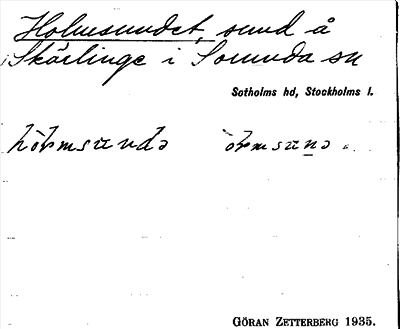 Holmsundet, sund å
Skärlinge i Sorunda sn
Sotholms hd, Stockholms l.
hòlmsundə òlmsunə.
GÖRAN ZETTERBERG 1935.